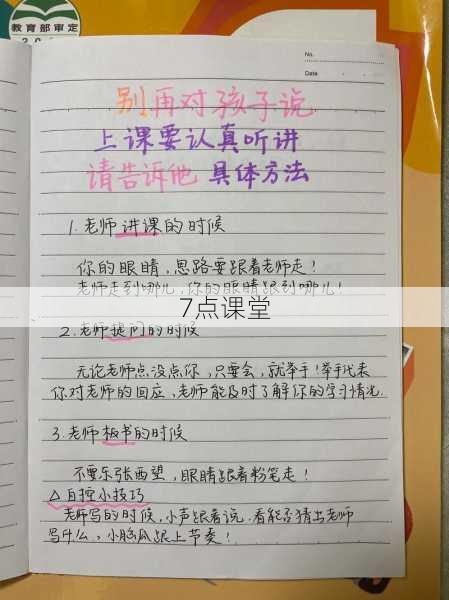 教育部审定
No.
Date
别再对孩子说
上课要认真听讲
请告诉他 具体方法
1.老师讲课的时候
你的眼睛,思路要跟着老师走!
老师走到哪儿,你的眼睛跟到哪儿!
7点课堂
2.老师提问的时候
无论老师点没点你,只要会,就举手!举手代表
你对老师的回应,老师能及时了解你的学习情况.
3.老师板书的时候
不要东张西望,眼睛跟着粉笔走!
△自控小技巧
老师写的时候,小声跟着说.看能否猜出老师
写什么,小脑瓜跟上节奏!